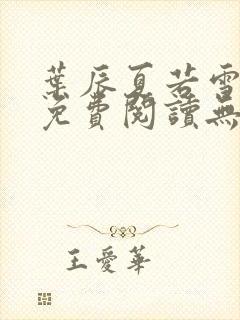 葉辰夏若雪
免費閱讀無
王愛華